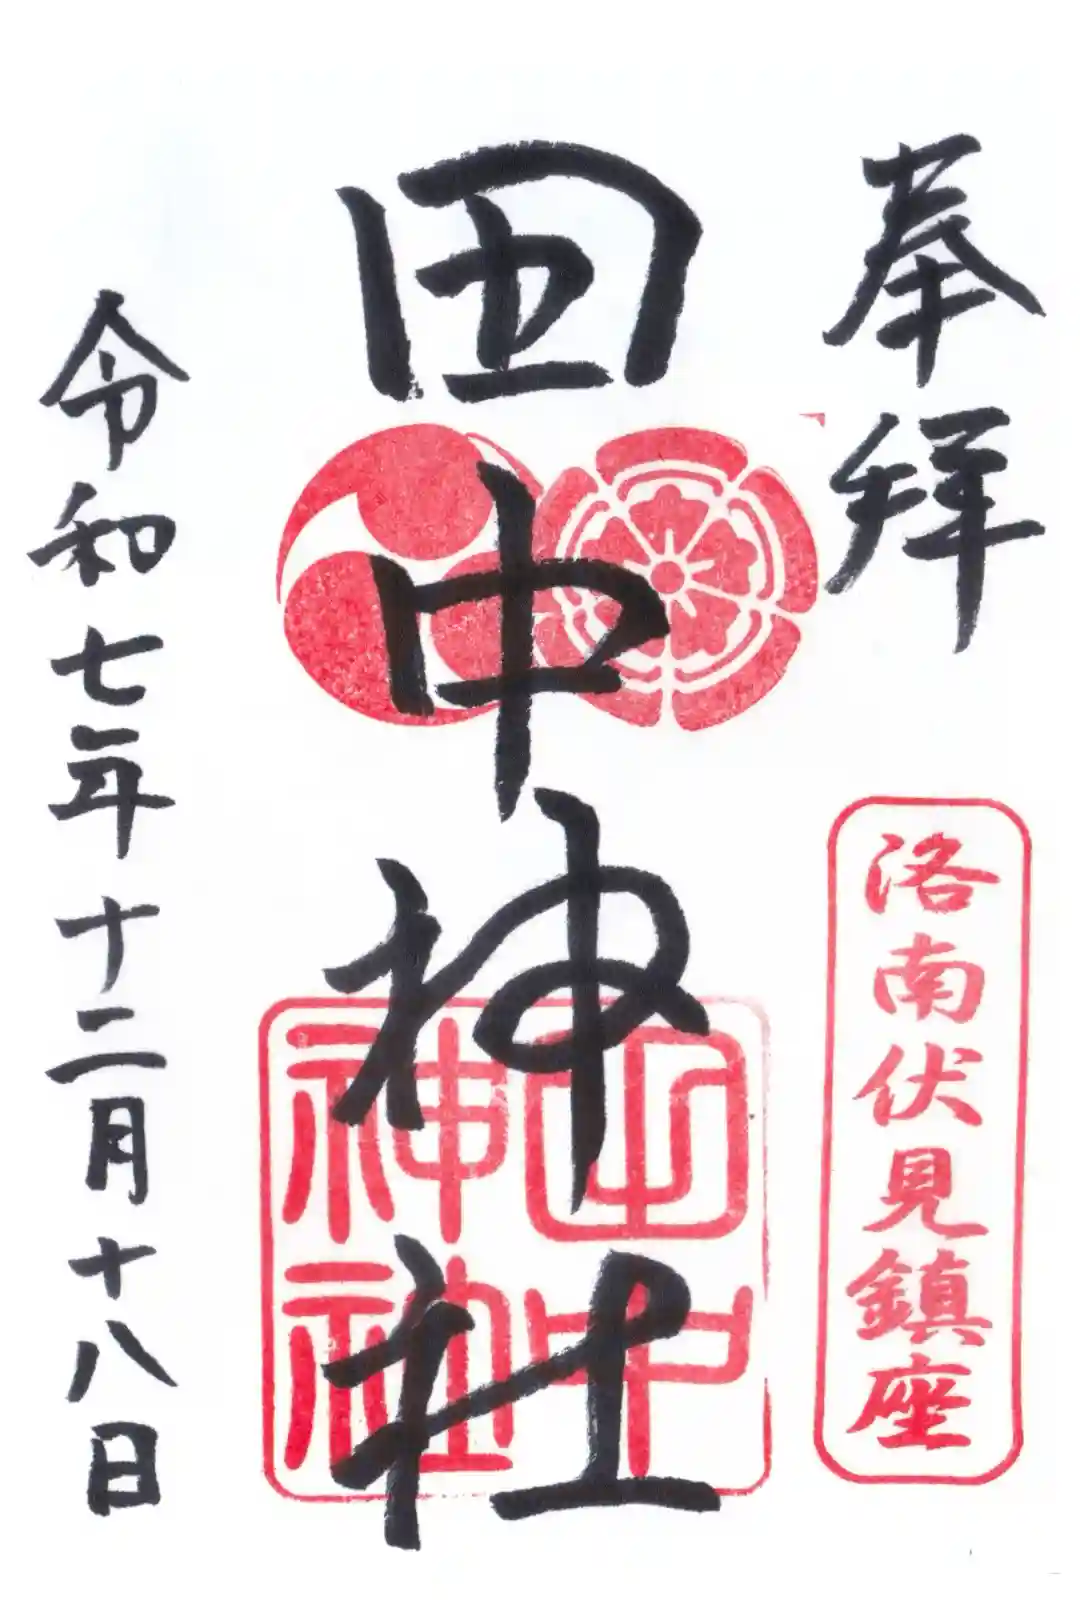 奉拝
洛南伏見鎮座
田中神社
田中
神社
令和七年十二月十八日